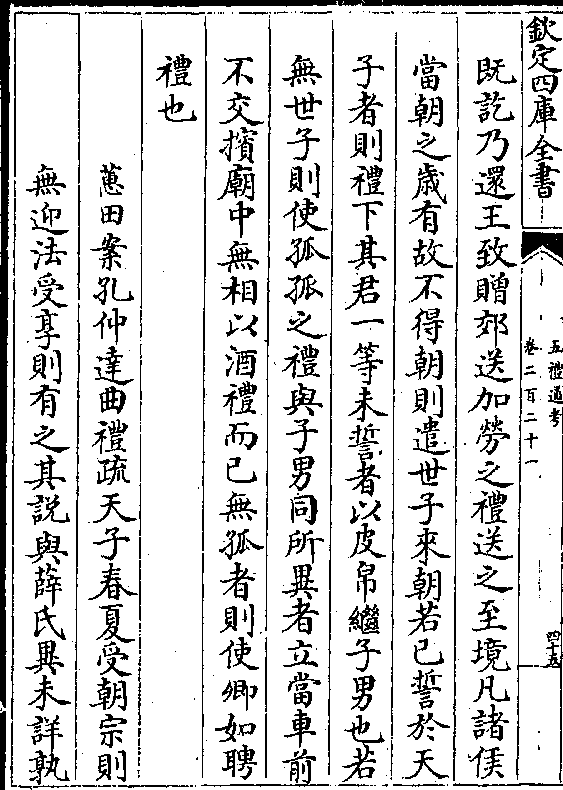 欽定四庫全書
五禮通考
卷二百二十一
四十五
既訖乃還王致贈郊送加勞之禮送之至境凡諸侯
當朝之歲有故不得朝則遣世子來朝若已誓於天
子者則禮下其君一等未誓者以皮帛繼子男也若
無世子則使孤孤之禮與子男同所異者立當車前
不交擯廟中無相以酒禮而已無孤者則使卿如聘
禮也
蕙田案孔仲達曲禮疏天子春夏受朝宗則
無迎法受享則有之其説與薛氏異未詳孰